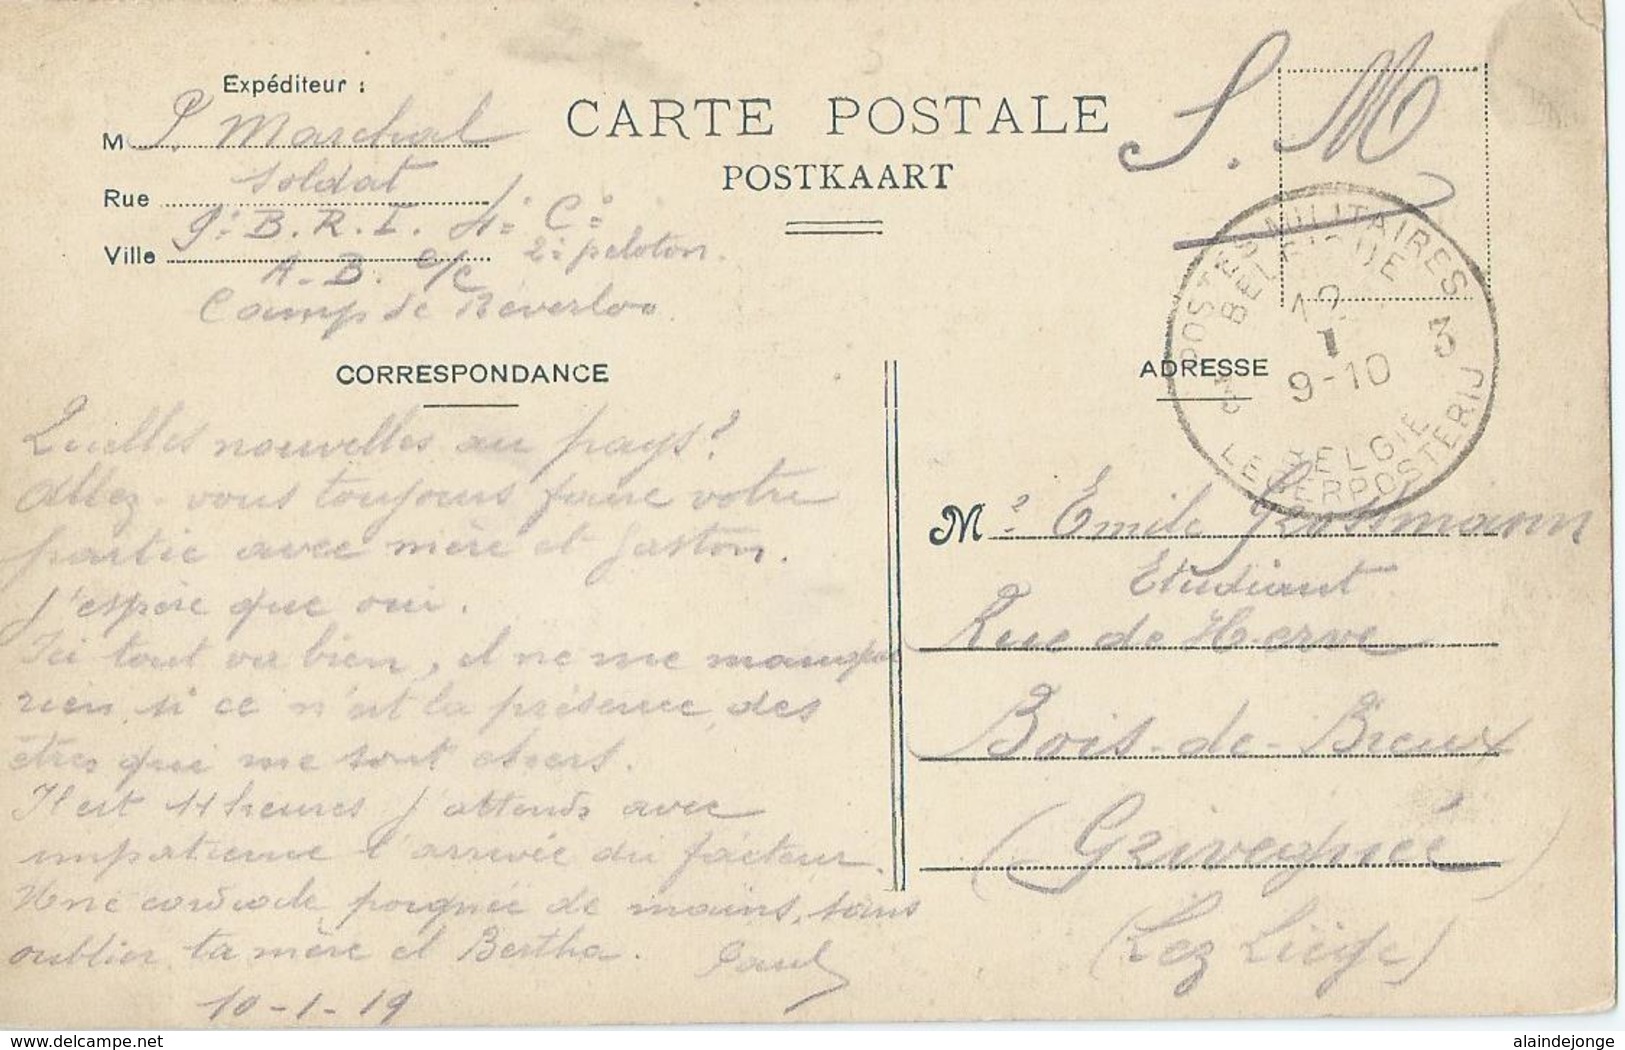 Expéditeur :
M P. Marchal
Soldat
Rue
9e B.R.I. 4e Cie
Ville
2e peloton.
A-B. e/c
Camp de Béverloo.
CARTE POSTALE
POSTKAART
S. M
POSTES MILITAIRES
BELGIQUE
10
I
9-10
3
BELGIE
LEGERPOSTERIJ
CORRESPONDANCE
Quelles nouvelles au pays?
Allez-vous toujours faire votre
partie avec mère et Gaston.
J'espère que oui.
Ici tout va bien, il ne me manque
rien, si ce n'est la présence des
êtres qui me sont chers.
Il est 11 heures j'attends avec
impatience l'arrivée du facteur.
Une cordiale poignée de mains, sans
oublier ta mère et Bertha. Paul
10-1-19
ADRESSE
Mr Emile
Etudiant
Rue de Herve
Bois-de-Breux
(Grivegnée)
(Lez Liège)
alaindejonge
www.delcampe.net